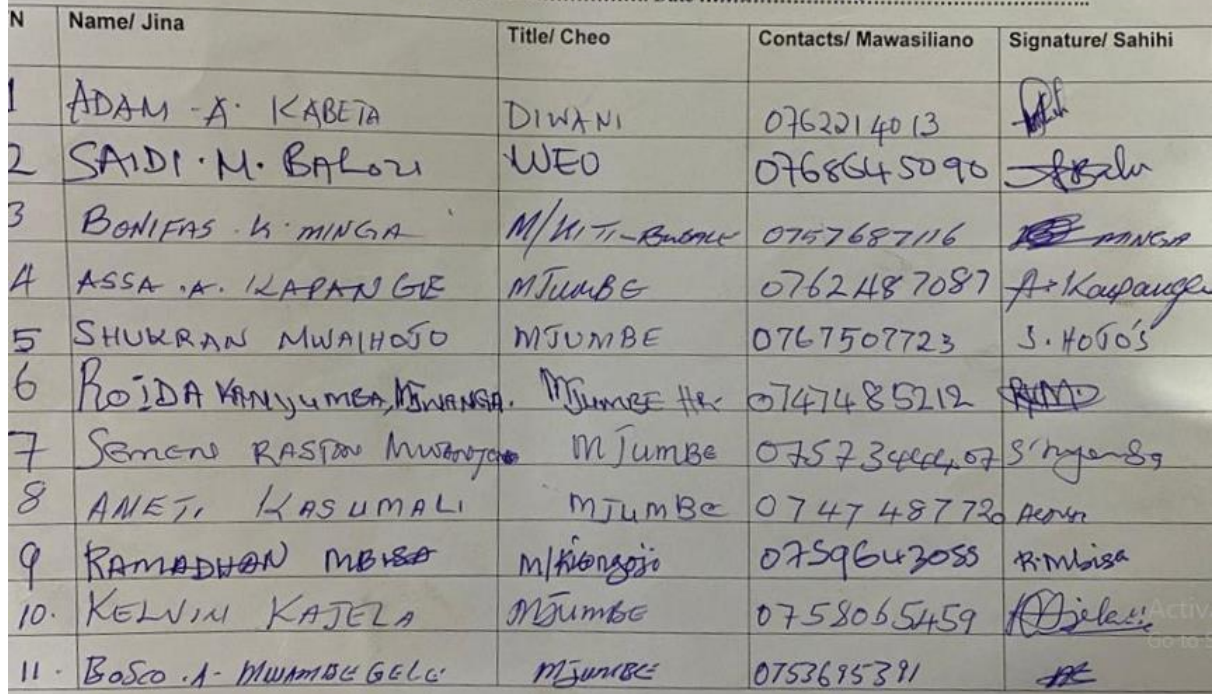 N Name/ Jina Title/ Cheo Contacts/ Mawasiliano Signature/ Sahihi
1 ADAM .A. KABETA DIWANI 0762214013
2 SAIDI .M. BALOZI WEO 0768645090
3 BONIFAS .K. MINGA M/KITI- 0757687116 MINGA
4 ASSA .A. KAPANGE MJUMBE 0762487087 A. Kapange
5 SHUKRAN MWAIHOJO MJUMBE 0767507723 S. HOJO'S
6 ROIDA KANYUMBA, MJUMBE HR. 0747485212
7 SEMENI RASTON MJUMBE
8 ANETI KASUMALI MJUMBE 0747487720
9 RAMADHAN MBISA M/Kiongojo 0759643055 R. Mbisa
10. KELVIN KAJELA MJUMBE 0758065459
11. BOSCO .A. MWAMBEGELE MJUMBE 0753695391